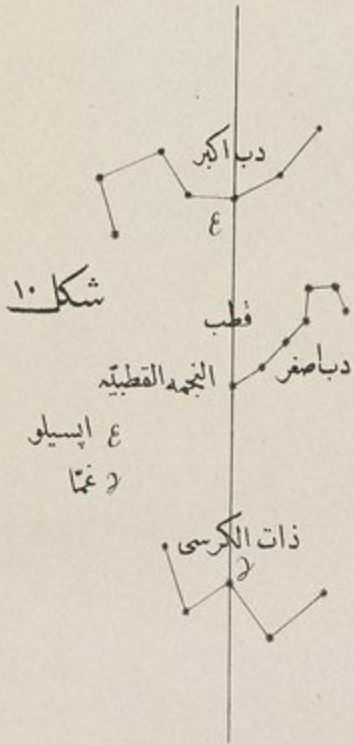 دب اكبر
ع
شكل ١٠
قطب
دب اصغر
النجمه القطبيّه
ع اپسيلو
ﻝ غمّا
ذات الكرسى
ﻝ